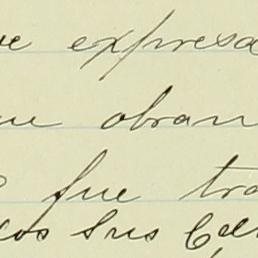 ue expresa
ue obran
fue tra
los sus